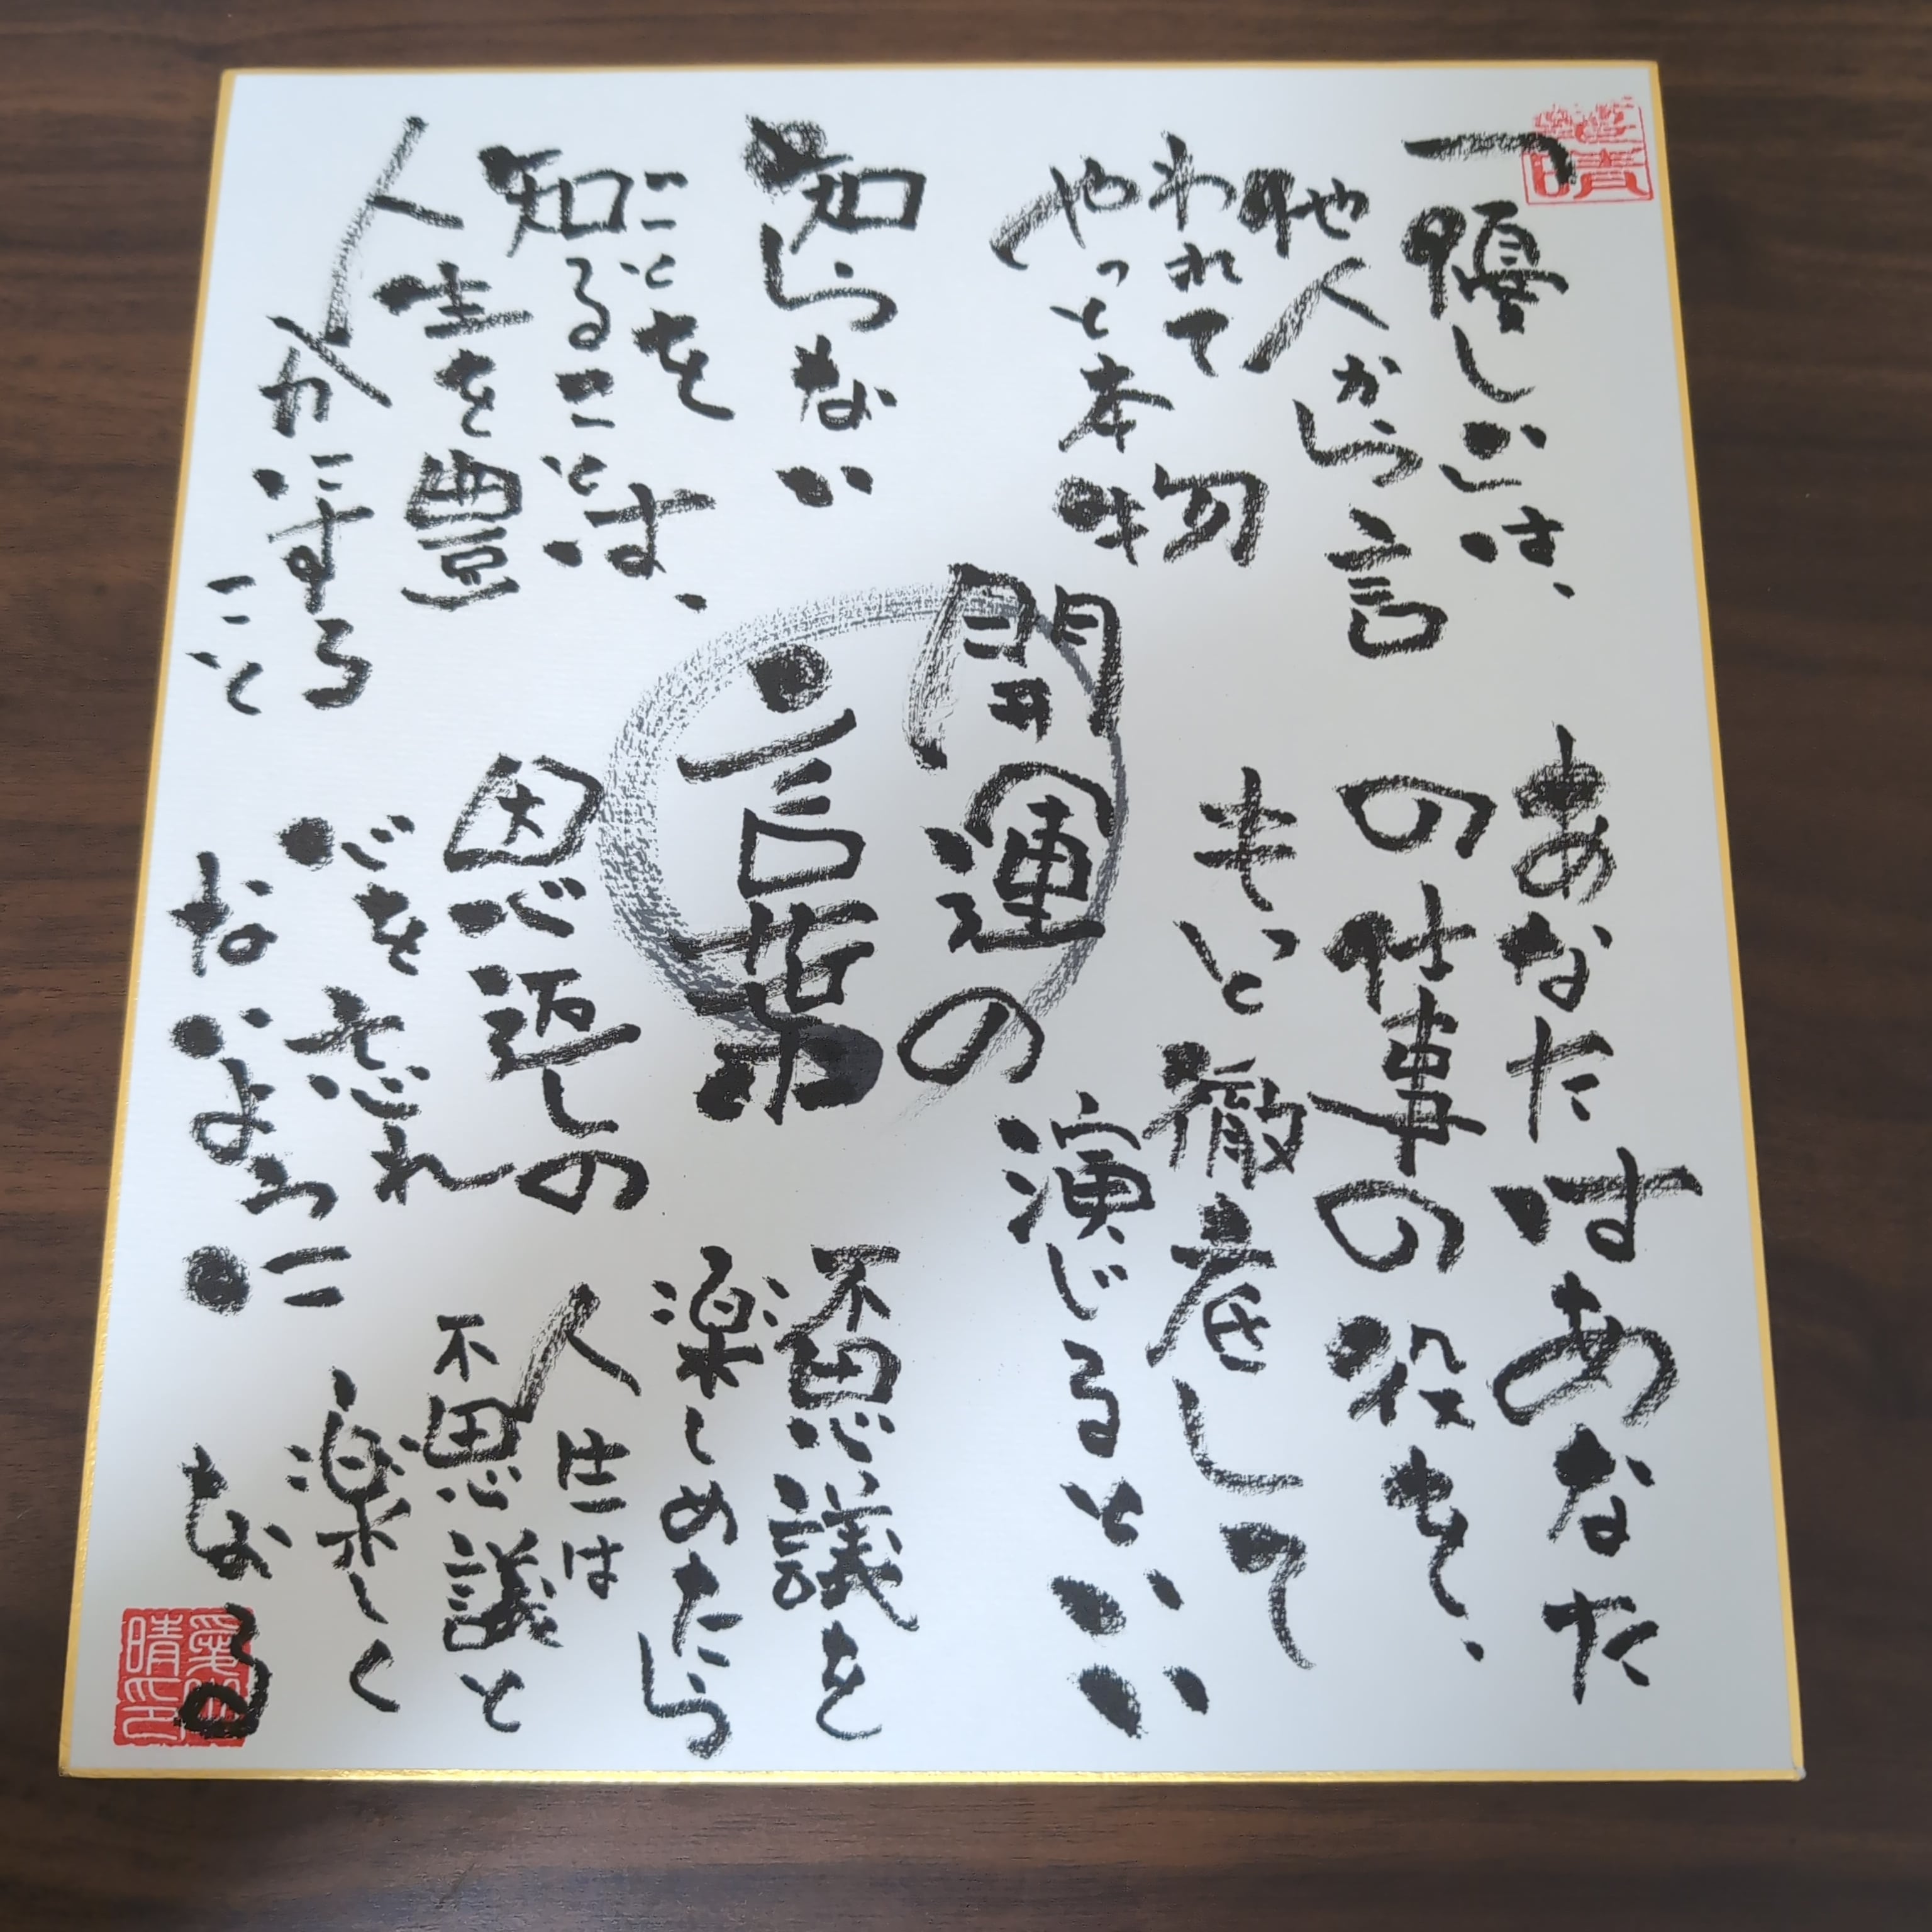 優しさは、
他人から言
われて
やっと本物
あなたはあなた
の仕事の役を、
もっと徹底して
演じるといい
開運の
言葉
知らない
ことを
知ることは、
人生を豊
かにする
こと
恩返しの
心を忘れ
ないように
不思議を
楽しめたら
人生は
不思議と
楽しく
なる